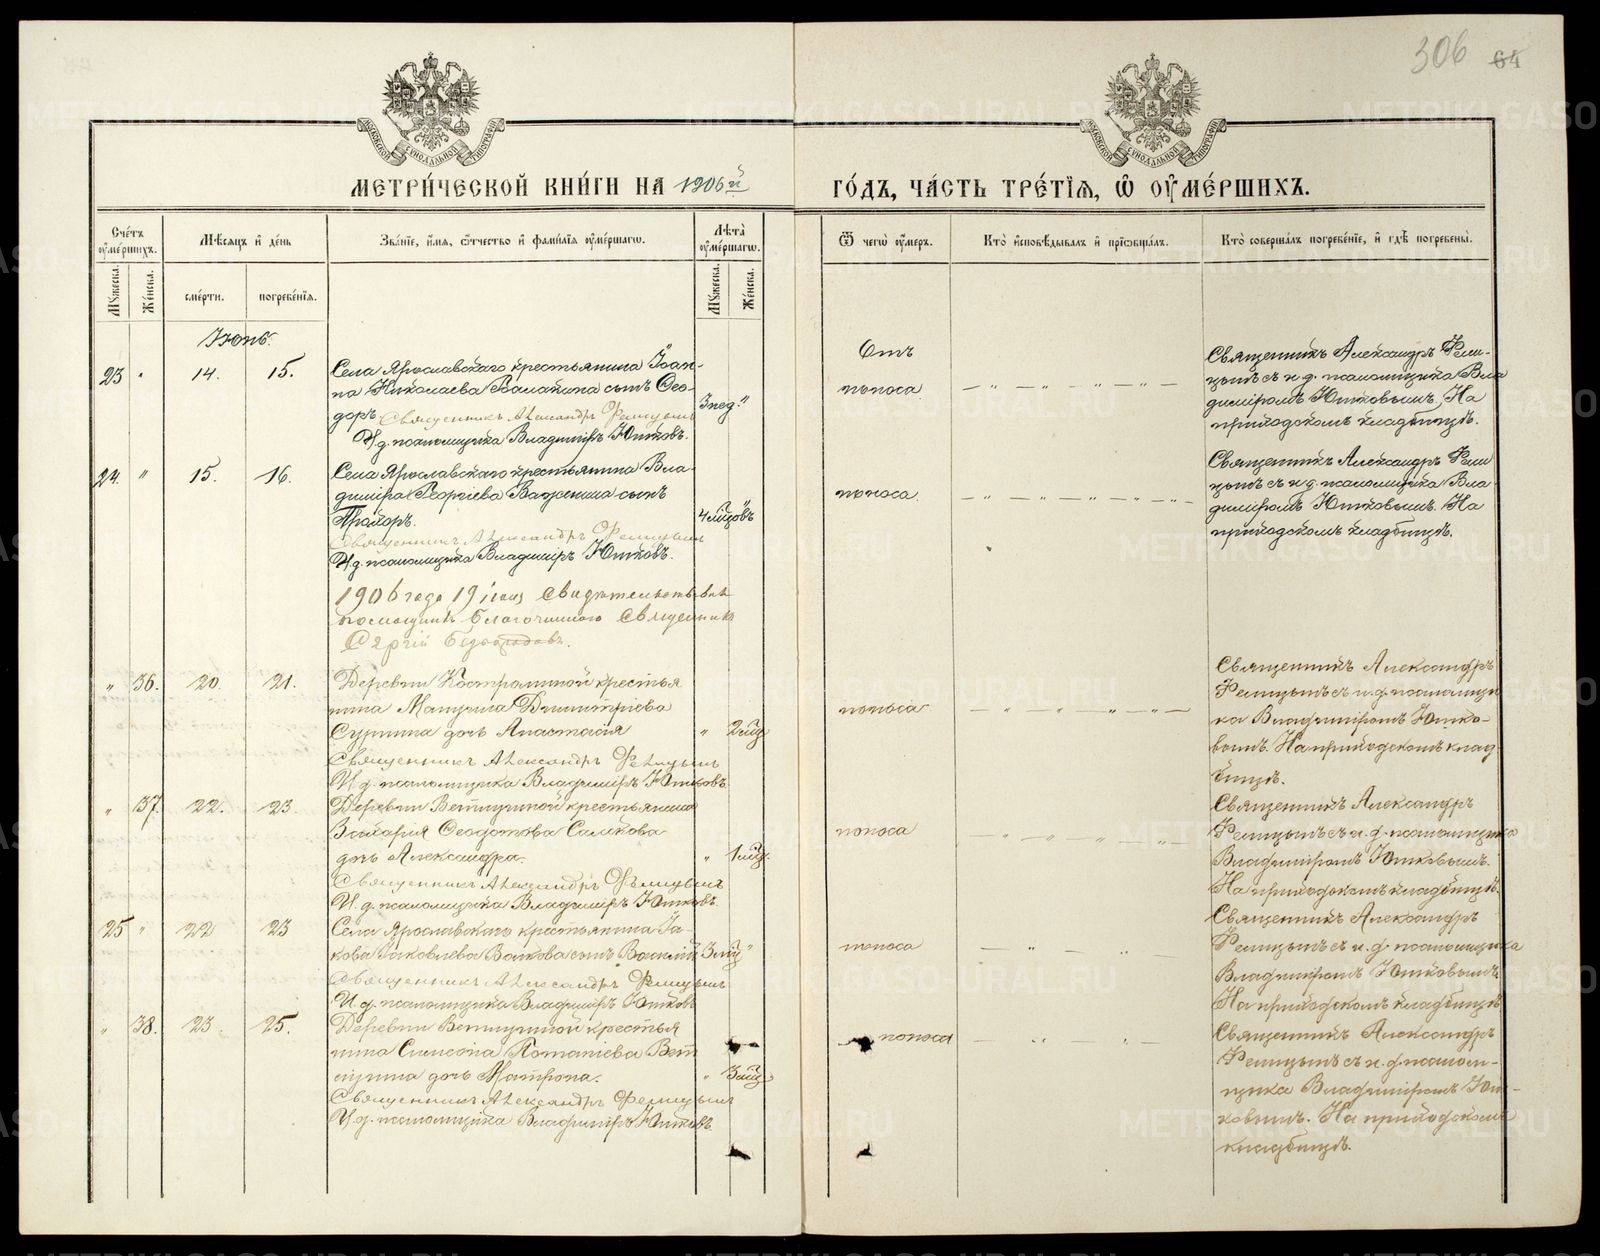 306 64
МОСКОВСКОЙ СѴНОДАЛЬНОЙ ТИПОГРАФІИ
МОСКОВСКОЙ СѴНОДАЛЬНОЙ ТИПОГРАФІИ
МЕТРИ́ЧЕСКОЙ КНИ́ГИ НА 1906й ГО́ДЪ, ЧА́СТЬ ТРЕ́ТІЯ, Ѡ ОУМЕ́РШИХЪ.
Сче́тъ оуме́ршихъ.
Мꙋжеска.
Же́нска.
Мѣ́сяцъ и де́нь
сме́рти.
погребе́нія.
Зва́ніе, и́мя, ѻ́тчество и фами́лія оуме́ршагѡ.
Лѣ́та оуме́ршагѡ.
Мꙋжеска.
Же́нска.
Ѿ чегѡ̀ оу́меръ.
Кто̀ исповѣ́дывалъ и пріѡбща́лъ.
Кто̀ соверша́лъ погребе́ніе, и гдѣ̀ погребены̀.
Іюнь.
23 " 14. 15.
Села Ярославскаго крестьянина Іоан-
на Николаева сынъ Ѳео-
доръ Священникъ Александръ
И. д. псаломщика Владиміръ Южковъ.
3 нед. "
Отъ
поноса
Священникъ Александръ
съ и. д. псаломщика Вла
диміромъ Южковымъ. На
приходскомъ кладбищѣ.
24. " 15. 16.
Села Ярославскаго крестьянина Вла-
диміра Георгіева сынъ
Прохоръ.
Священникъ Александръ
И. д. псаломщика Владиміръ Южковъ.
4 мцовъ
поноса.
Священникъ Александръ
съ и. д. псаломщика Вла-
диміромъ Южковымъ. На
приходскомъ кладбищѣ.
1906 года 19 іюля свидѣтельствовалъ
помощникъ благочиннаго Священникъ
Сергій
" 36. 20. 21.
Деревни Костромины крестья
нина Мануила Димитріева
дочь Анастасія
Священникъ Александръ
И. д. псаломщика Владиміръ Южковъ.
" 2 мц
поноса
Священникъ Александръ
съ и. д. псаломщи
ка Владиміромъ Южко-
вымъ. На приходскомъ клад-
бищѣ.
" 37. 22. 23.
Деревни крестьянина
Захарія Ѳеодотова
дочь Александра.
Священникъ Александръ
И. д. псаломщика Владиміръ Южковъ.
" 1 мц.
поноса
Священникъ Александръ
съ и. д. псаломщика
Владиміромъ Южковымъ.
На приходскомъ кладбищѣ.
25 " 22 23
Села Ярославскаго крестьянина Іа-
кова Іаковлева Волкова сынъ Василій
Священникъ Александръ
И. д. псаломщика Владиміръ Южковъ
3 мц "
поноса
Священникъ Александръ
съ и. д. псаломщика
Владиміромъ Южковымъ
На приходскомъ кладбищѣ
" 38. 23. 25.
Деревни крестья
нина Симеона Потапіева
дочь Матрона.
Священникъ Александръ
И. д. псаломщика Владиміръ Южковъ.
" 3 мц.
поноса
Священникъ Александръ
съ и. д. псалом-
щика Владиміромъ Юж-
ковымъ. На приходскомъ
кладбищѣ.